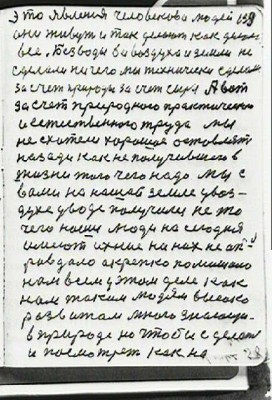 Это явления человекова людей 129
они живут и так делают как делали
все. Безводы и воздуха и земли не
сделали ничего мы технически сделали
за счет природы за счет сыря. А вот
за счет природного практического
и естественного труда мы
не схители хорошая оставлять
назади как не получившего в
жизни того чего надо. Мы с
вами на нашай земле у воз-
духе у воде получили не то
чего наши люди на сегодня
имеют ихние на них не оп-
равдало а крепко помешало
нам всем у этом деле как
нам таким людям высоко
развитам много знающи-
в природе но чтобы сделать
и посмотреть как на